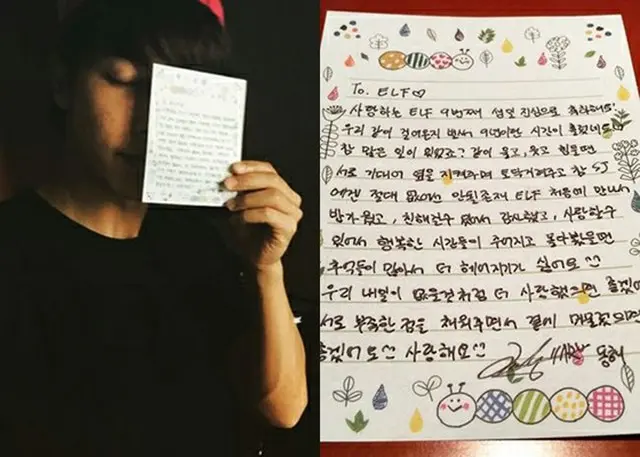 To. ELF♡
사랑하는 ELF 9번째 생일 진심으로 축하해요!
우리 같이 걸어온지 벌써 9년이란 시간이 흘렀네요
참 많은 일이 있었죠? 같이 울고, 웃고 힘들땐
서로 기대어 옆을 지켜주며 토닥거려주고 참 SJ
에겐 절대 없어선 안될존재 ELF 처음에 만나서
반가웠고, 친해질수 있어서 감사했고, 사랑할수
있어서 행복한 시간들이 주어지고 돌아봤을땐
추억들이 많아서 더 헤어지기가 싫어요^^
우리 내일이 없을것처럼 더 사랑했으면 좋겠어
서로 부족한 점을 채워주면서 곁에 머물렀으면
좋겠어요^^ 사랑해요^^ 동해